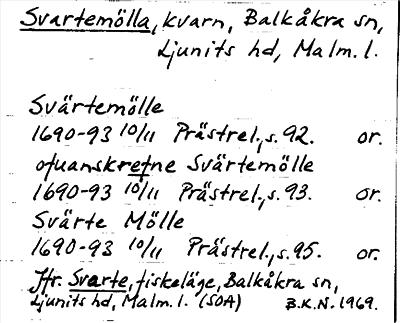 Svartemölla, kvarn, Balkåkra sn,
Ljunits hd, Malm. l.
Svärtemölle
1690-93 10/11 Prästrel., s. 92. or.
ofuanskrefne Svärtemölle
1690-93 10/11 Prästrel., s. 93. or.
Svärte Mölle
1690-93 10/11 Prästrel., s. 95. or.
Jfr. Svarte, fiskeläge, Balkåkra sn,
Ljunits hd, Malm. l. (SOA) B.K.N. 1969.